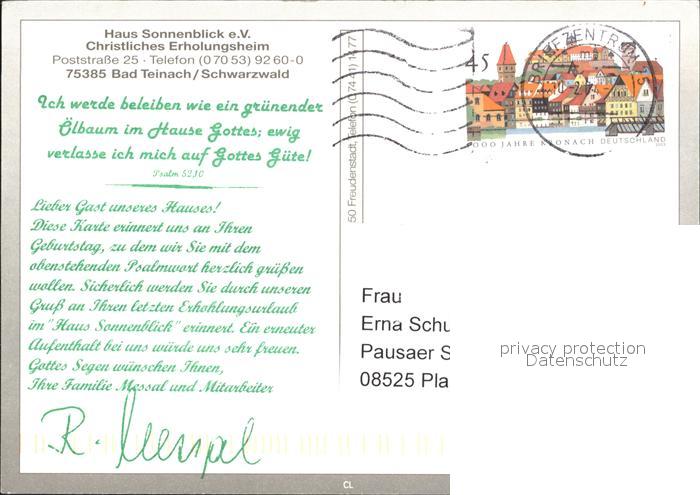 Haus Sonnenblick e.V.
Christliches Erholungsheim
Poststraße 25 · Telefon (0 70 53) 92 60-0
75385 Bad Teinach/Schwarzwald
Ich werde beleiben wie ein grünender
Ölbaum im Hause Gottes; ewig
verlasse ich mich auf Gottes Güte!
Psalm 52,10
Lieber Gast unseres Hauses!
Diese Karte erinnert uns an Ihren
Geburtstag, zu dem wir Sie mit dem
obenstehenden Psalmwort herzlich grüßen
wollen. Sicherlich werden Sie durch unseren
Gruß an Ihren letzten Erhohlungsurlaub
im "Haus Sonnenblick" erinnert. Ein erneuter
Aufenthalt bei uns würde uns sehr freuen.
Gottes Segen wünschen Ihnen,
Ihre Familie Messal und Mitarbeiter
R. Messal
50 Freudenstadt, Telefon
45
BRIEFZENTRUM
1000 JAHRE KRONACH DEUTSCHLAND
2003
Frau
Erna Schu
Pausaer S
08525 Pla
privacy protection
Datenschutz
CL